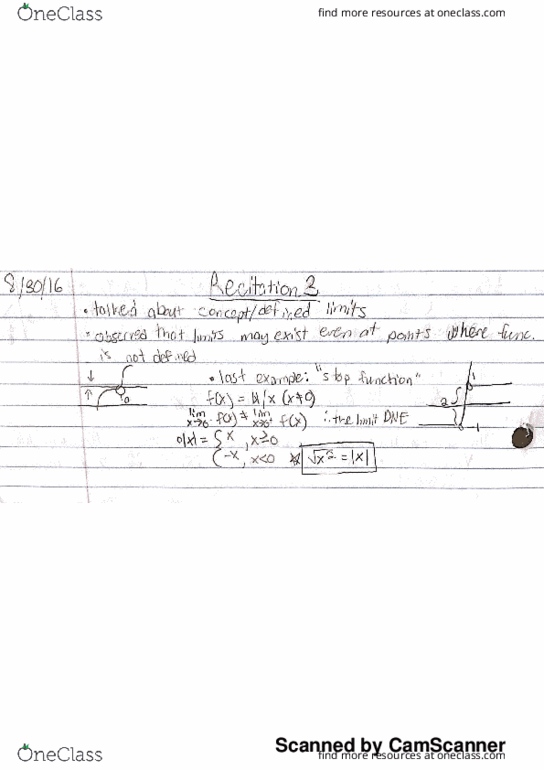 OneClass
find more resources at oneclass.com
8/30/16
Recitation 3
• talked about concept/defined limits
• observed that limits may exist even at points where func.
is not defined
• last example: "stop function"
f(x) = |x|/x (x≠0)
lim x→0⁻ f(x) ≠ lim x→0⁺ f(x) ∴ the limit DNE
|x| = { x , x≥0
-x , x<0 √x² = |x|
1
2
-1
Scanned by CamScanner
OneClass
find more resources at oneclass.com